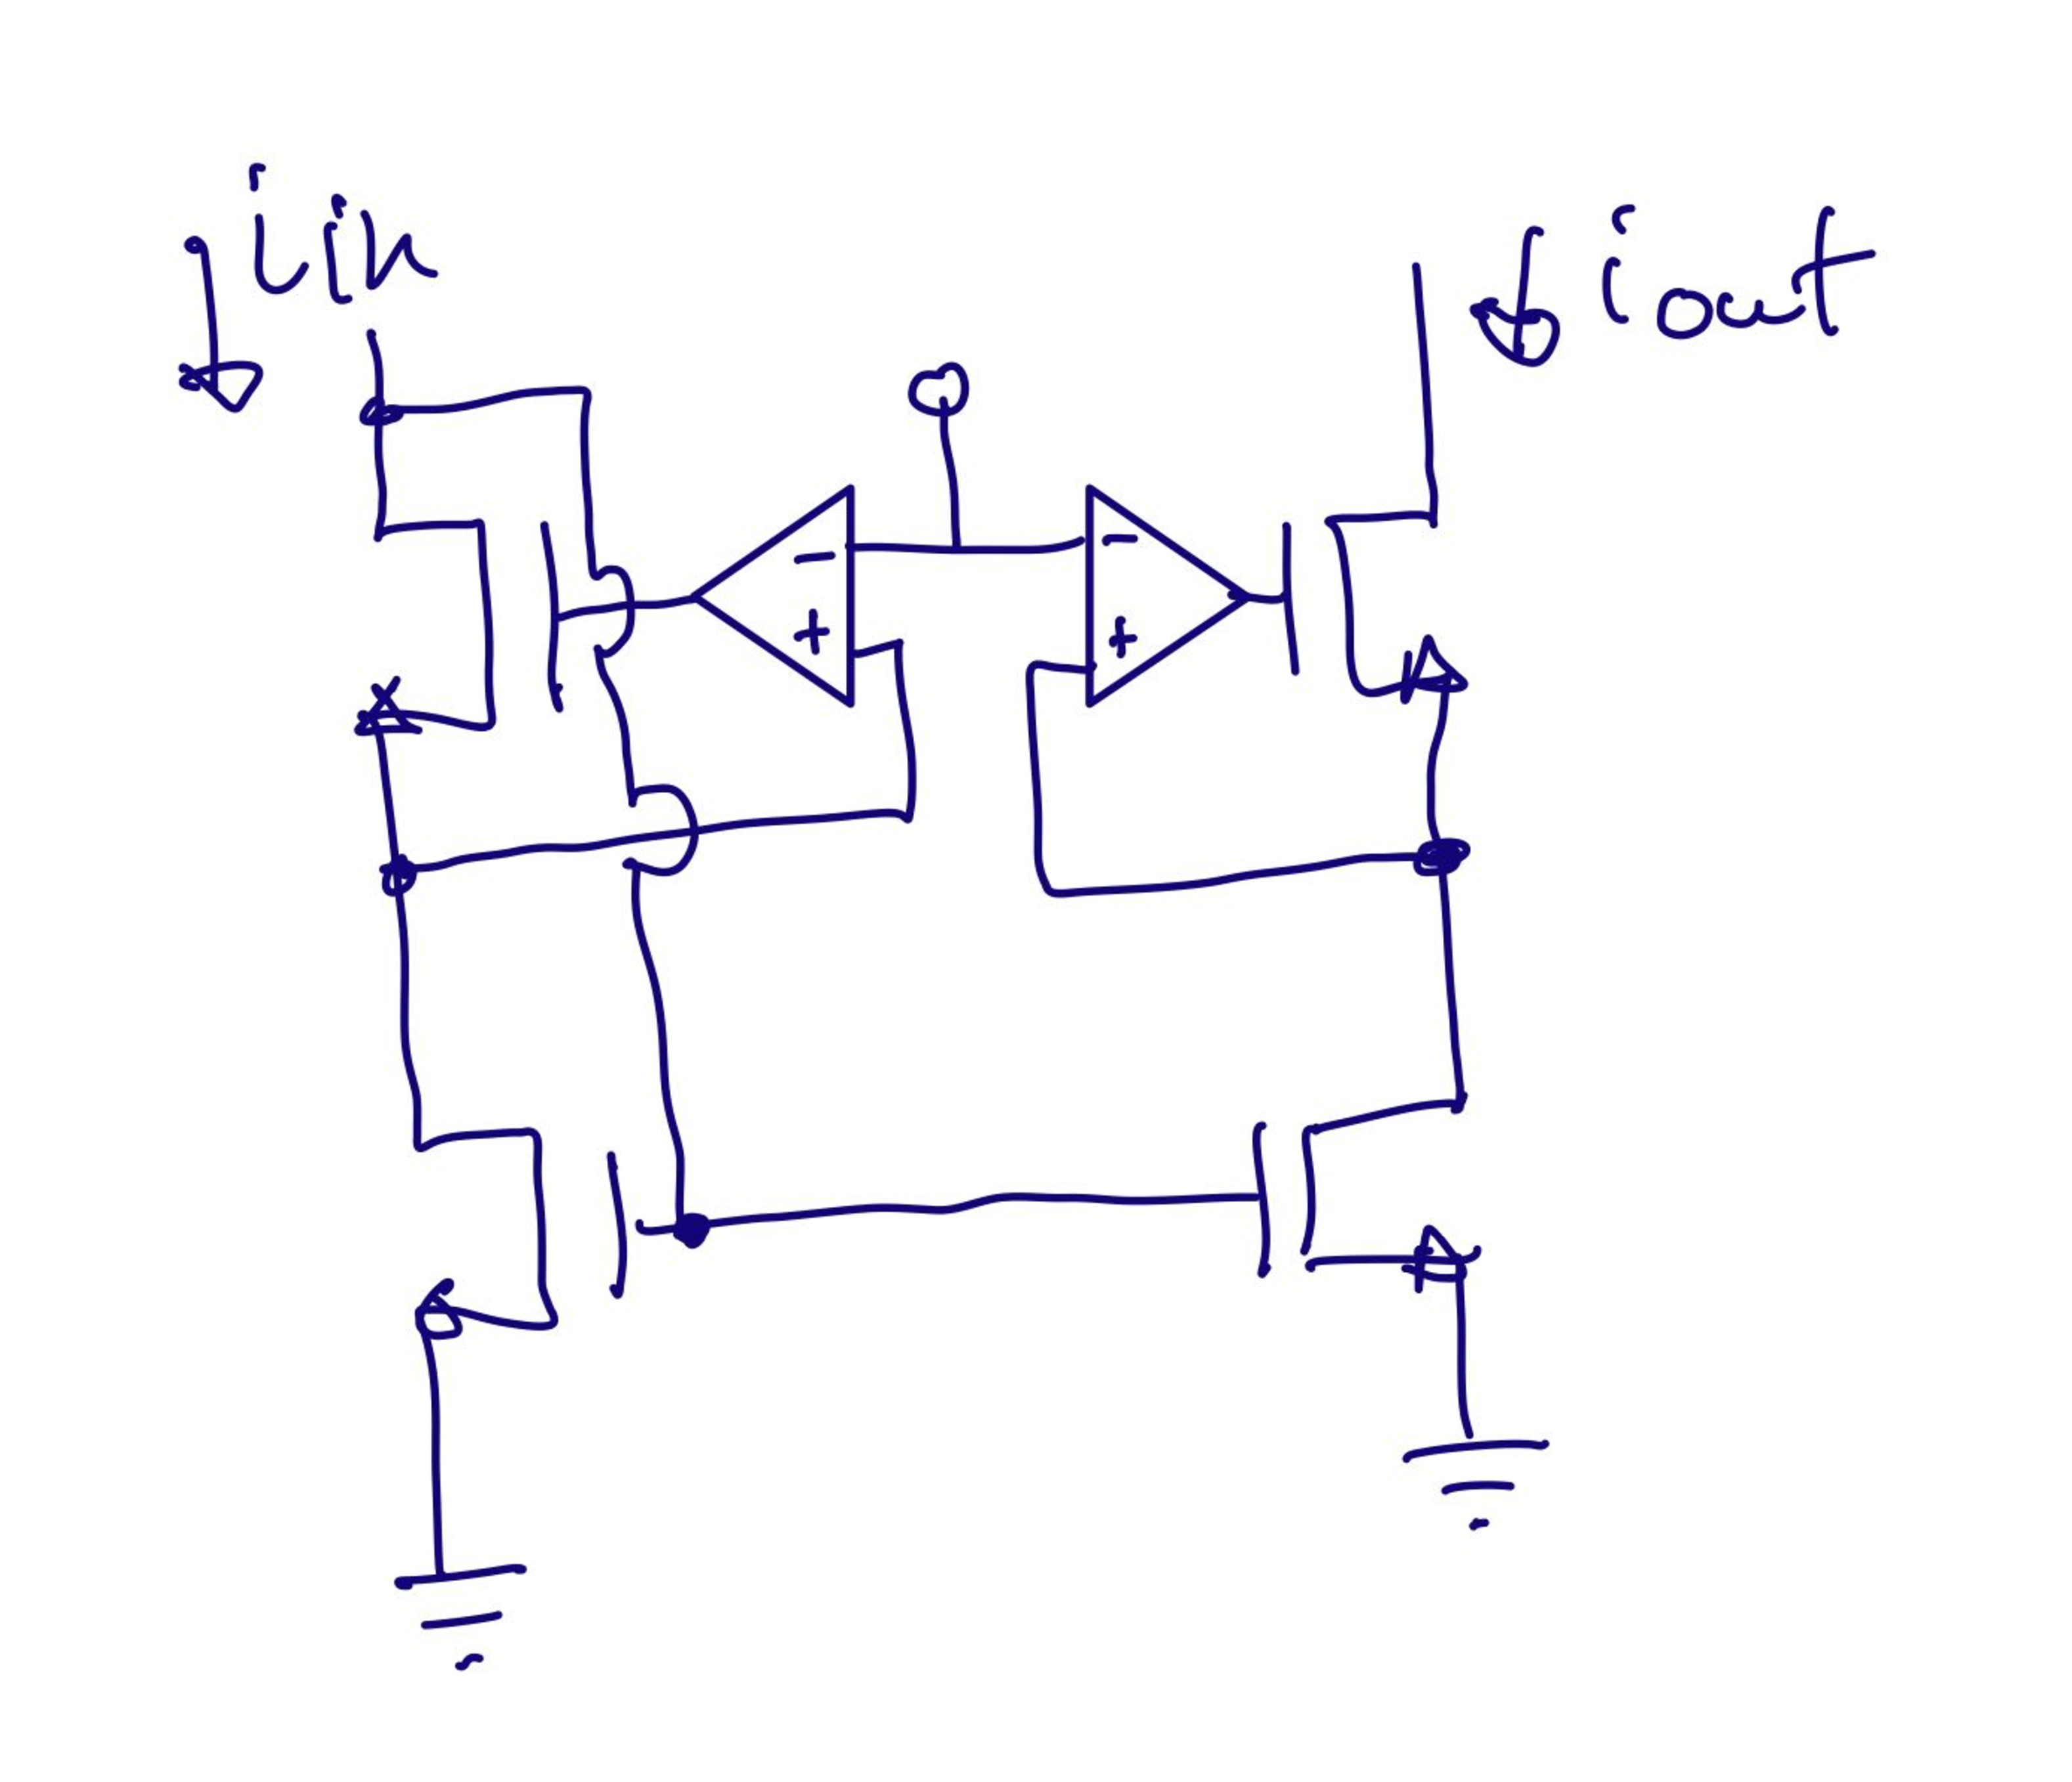 i in
i out
- -
+ +